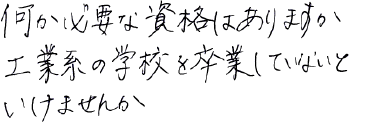 何か必要な資格はありますか
工業系の学校を卒業していないと
いけませんか